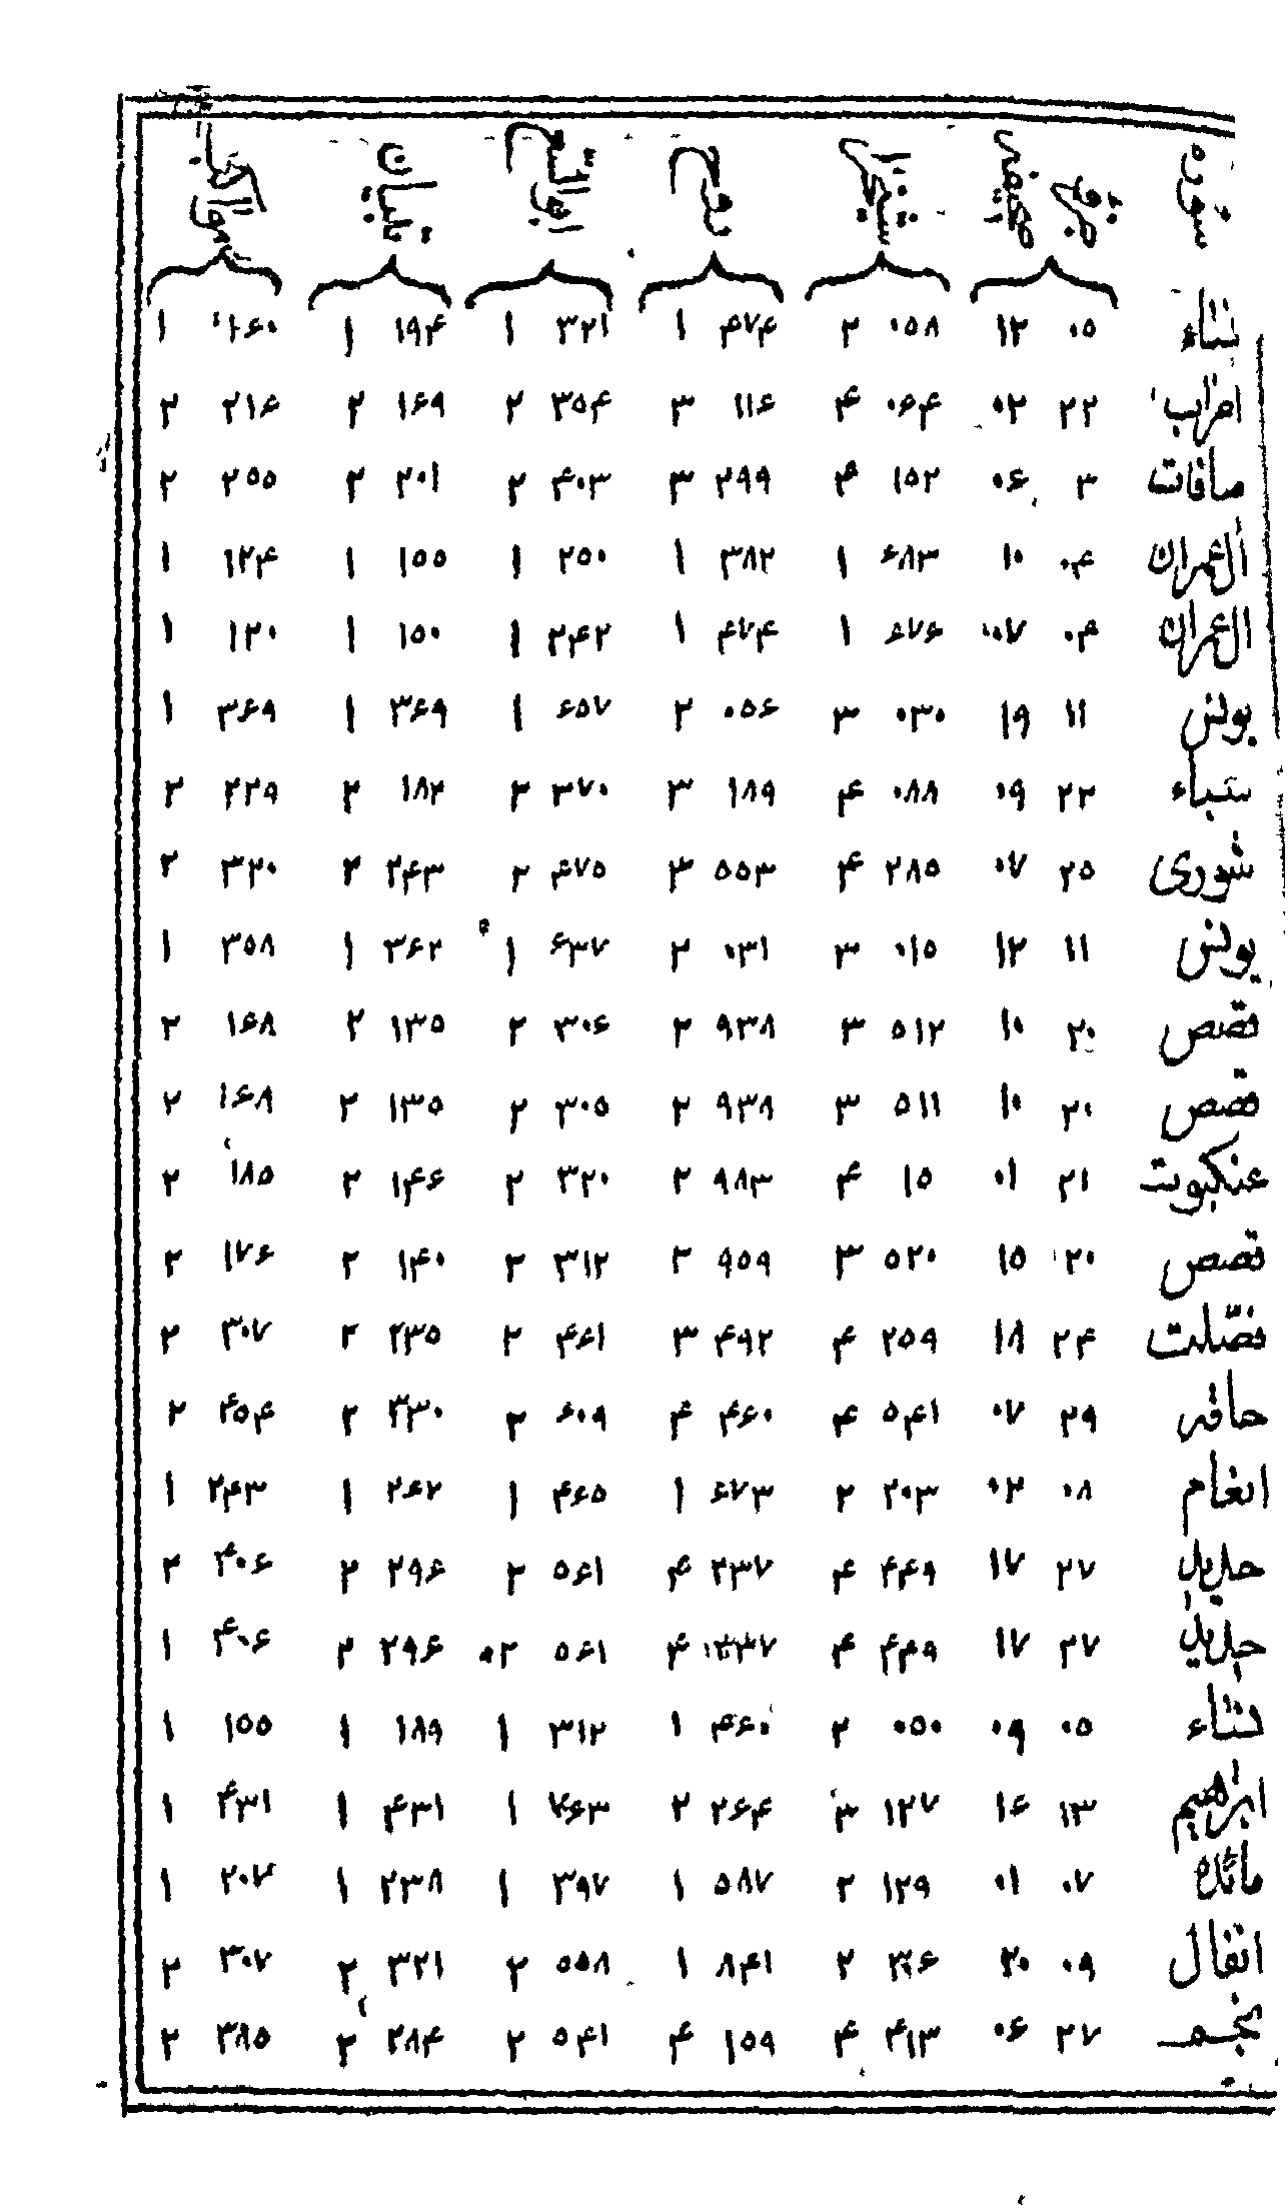 سوره جزو صحیفه روح ابو الستعود تبیان
نساء ۰۵ ۱۲ ۰۵۸ ۲ ۴۷۴ ۱ ۳۲۱ ۱ ۱۹۴ ۱ ۱۶۰ ۱
احزاب ۲۲ ۰۲ ۰۶۴ ۴ ۱۱۶ ۳ ۳۵۴ ۲ ۱۶۹ ۲ ۲۱۶ ۲
صافات ۳ ۰۶ ۱۵۲ ۴ ۲۹۹ ۳ ۴۰۳ ۲ ۲۰۱ ۲ ۲۵۵ ۲
آل عمران ۰۴ ۱۰ ۶۸۳ ۱ ۳۸۲ ۱ ۲۵۰ ۱ ۱۵۵ ۱ ۱۲۴ ۱
ال عمران ۰۴ ۰۷ ۶۷۶ ۱ ۴۷۴ ۱ ۲۴۲ ۱ ۱۵۰ ۱ ۱۲۰ ۱
یونس ۱۱ ۱۹ ۰۳۰ ۳ ۰۵۶ ۲ ۶۵۷ ۱ ۳۶۹ ۱ ۳۶۹ ۱
سباء ۲۲ ۰۹ ۰۸۸ ۴ ۱۸۹ ۳ ۳۷۰ ۲ ۱۸۲ ۲ ۲۲۹ ۲
شوری ۲۵ ۰۷ ۲۸۵ ۴ ۵۵۳ ۳ ۴۷۵ ۲ ۲۴۳ ۲ ۳۲۰ ۲
یونس ۱۱ ۱۲ ۰۱۵ ۳ ۰۳۱ ۲ ۶۳۷ ۱ ۳۶۲ ۱ ۳۵۸ ۱
قصص ۲۰ ۱۰ ۵۱۲ ۳ ۹۳۸ ۲ ۳۰۶ ۲ ۱۳۵ ۲ ۱۶۸ ۲
قصص ۲۰ ۱۰ ۵۱۱ ۳ ۹۳۸ ۲ ۳۰۵ ۲ ۱۳۵ ۲ ۱۶۸ ۲
عنکبوت ۲۱ ۰۱ ۱۵ ۴ ۹۸۳ ۲ ۳۲۰ ۲ ۱۴۶ ۲ ۱۸۵ ۲
قصص ۲۰ ۱۵ ۵۲۰ ۳ ۹۵۹ ۲ ۳۱۲ ۲ ۱۴۰ ۲ ۱۷۶ ۲
فصّلت ۲۴ ۱۸ ۲۵۹ ۴ ۴۹۲ ۳ ۴۶۱ ۲ ۲۳۵ ۲ ۳۰۷ ۲
حاقه ۲۹ ۰۷ ۵۴۱ ۴ ۴۶۰ ۴ ۶۰۹ ۲ ۳۳۰ ۲ ۴۵۴ ۲
انعام ۰۸ ۰۲ ۲۰۳ ۲ ۶۷۳ ۱ ۴۶۵ ۱ ۲۶۲ ۱ ۲۴۳ ۱
حدید ۲۷ ۱۷ ۴۴۹ ۴ ۲۳۷ ۴ ۵۶۱ ۲ ۲۹۶ ۲ ۴۰۶ ۲
حدید ۲۷ ۱۷ ۴۴۹ ۴ ۲۳۷ ۴ ۵۶۱ ۲ ۲۹۶ ۲ ۴۰۶ ۱
نساء ۰۵ ۰۹ ۰۵۰ ۲ ۴۶۰ ۱ ۳۱۲ ۱ ۱۸۹ ۱ ۱۵۵ ۱
ابراهیم ۱۳ ۱۶ ۱۲۷ ۳ ۲۶۴ ۲ ۷۶۳ ۱ ۴۳۱ ۱ ۴۳۱ ۱
مائده ۰۷ ۰۱ ۱۲۹ ۲ ۵۸۷ ۱ ۳۹۷ ۱ ۲۳۸ ۱ ۲۰۷ ۱
انفال ۰۹ ۲۰ ۲ ۸۴۱ ۱ ۵۵۸ ۲ ۳۲۱ ۲ ۳۰۷ ۲
نجم ۲۷ ۰۶ ۴۱۳ ۴ ۱۵۹ ۴ ۵۴۱ ۲ ۲۸۴ ۲ ۳۸۵ ۲